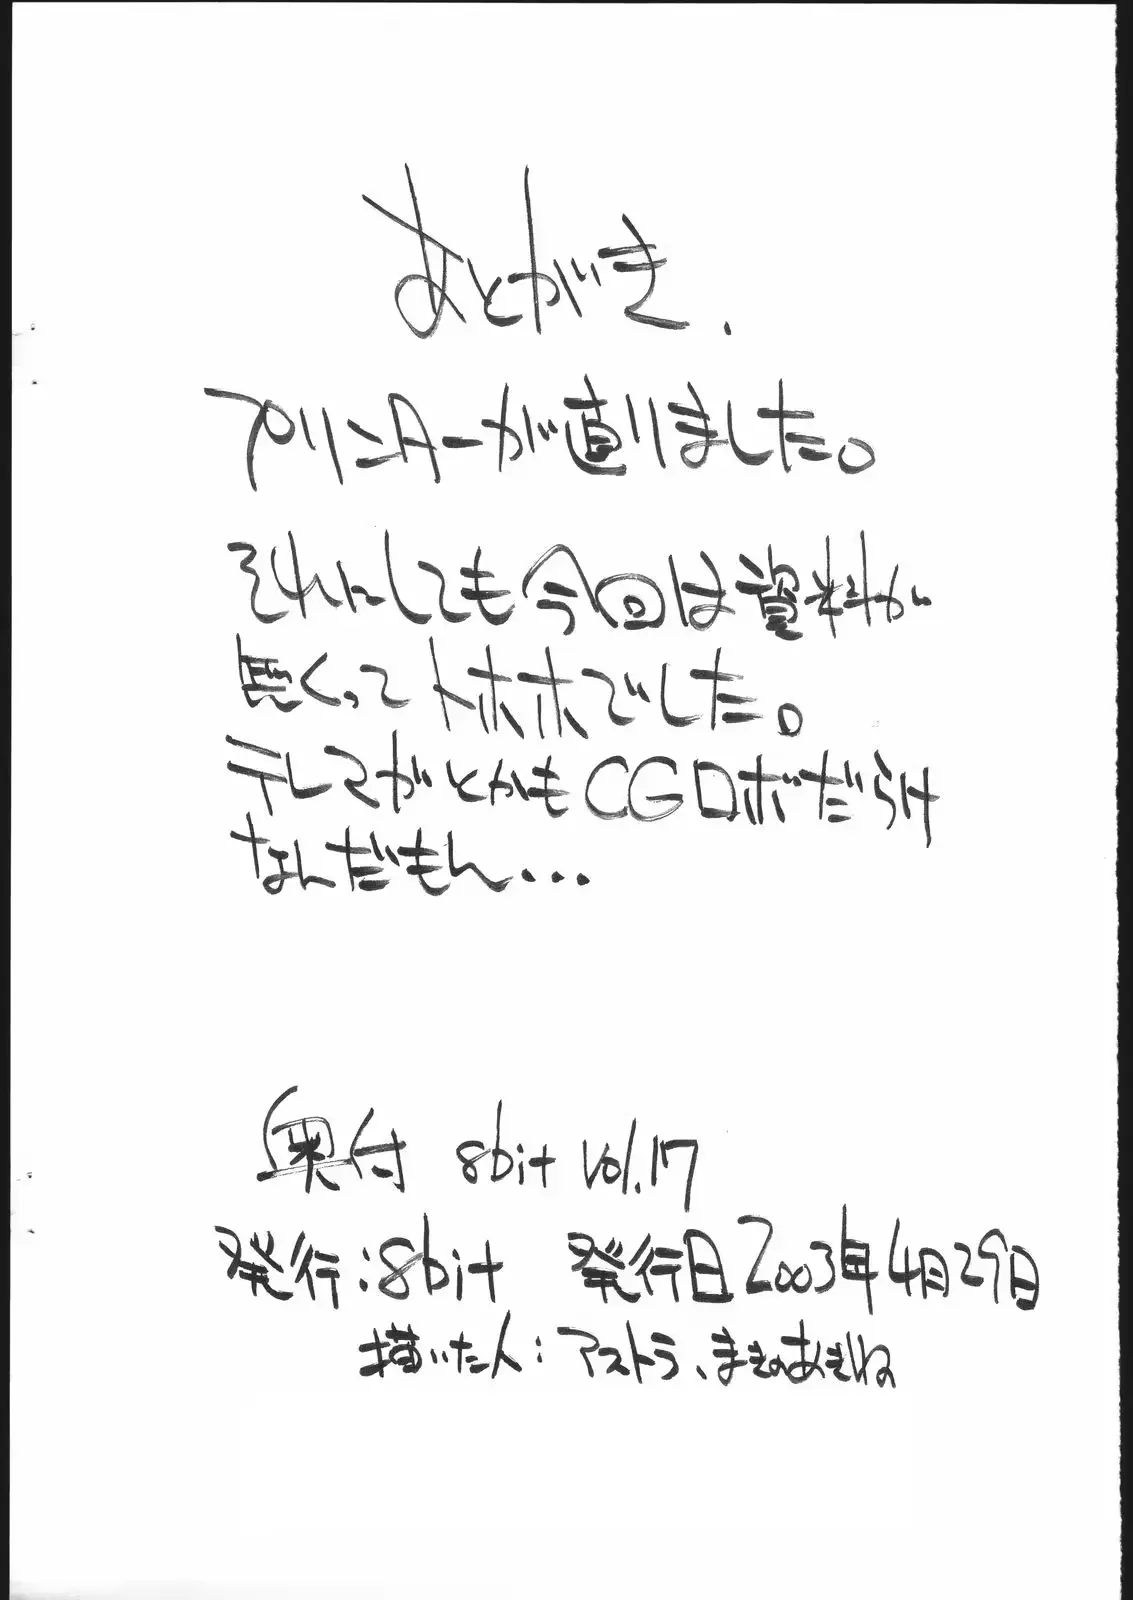 あとがき.
プリンターが直りました。
それにしても今回は資料が
悪くってトホホでした。
テレマガとかもCGロボだらけ
なんだもん...
奥付 8bit Vol.17
発行:8bit 発行日2003年4月29日
描いた人:アストラ、まきのあきね